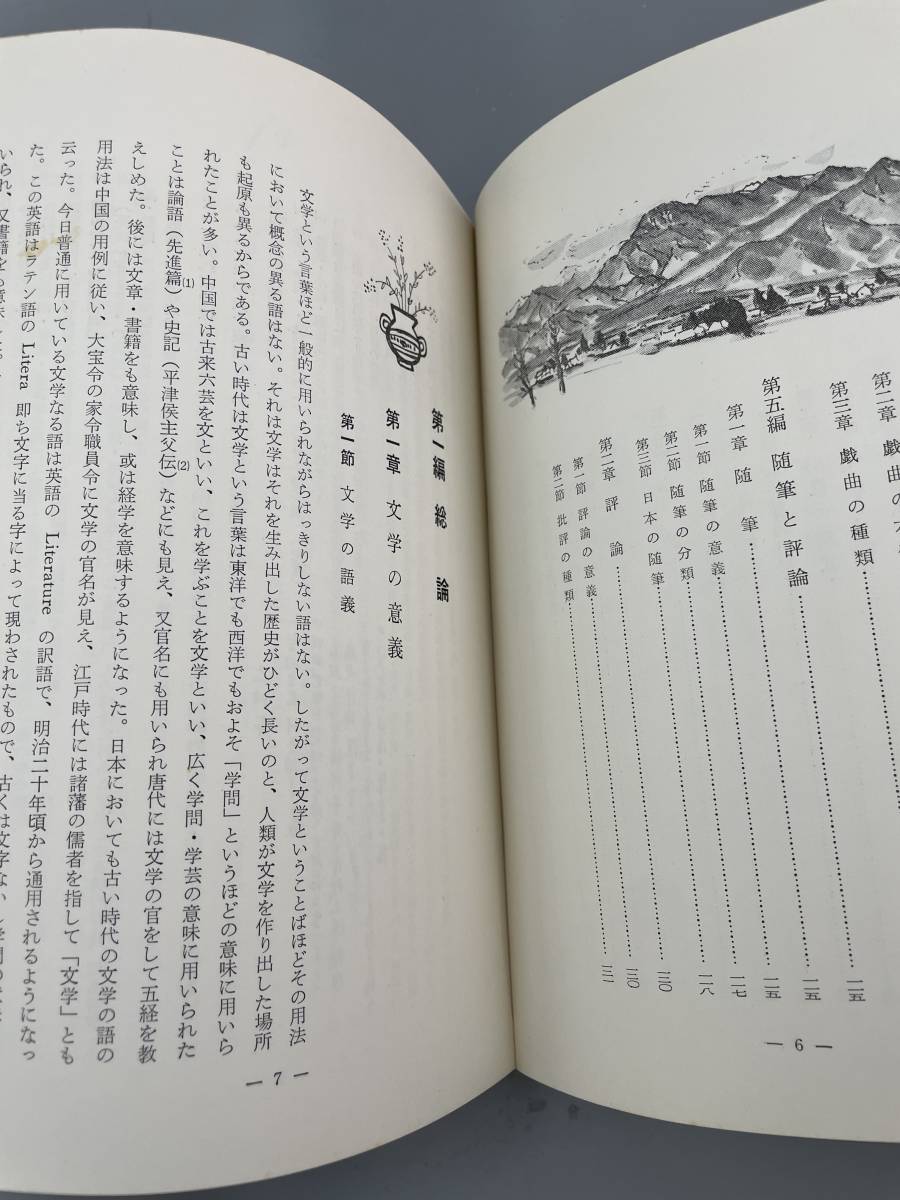 第二章
第三章 戯曲の種類……二五
第五編 随筆と評論……二五
第一章 随筆……二七
第一節 随筆の意義……二八
第二節 随筆の分類……三〇
第三節 日本の随筆……三〇
第二章 評論……三一
第一節 評論の意義
第二節 批評の種類
— 6 —
第一編 総論
第一章 文学の意義
第一節 文学の語義
文学という言葉ほど一般的に用いられながらはっきりしない語はない。したがって文学ということばほどその用法
において概念の異る語はない。それは文学はそれを生み出した歴史がひどく長いのと、人類が文学を作り出した場所
も起原も異るからである。古い時代は文学という言葉は東洋でも西洋でもおよそ「学問」というほどの意味に用いら
れたことが多い。中国では古来六芸を文といい、これを学ぶことを文学といい、広く学問・学芸の意味に用いられた
ことは論語(先進篇)(1)や史記(平津侯主父伝)(2)などにも見え、又官名にも用いられ唐代には文学の官をして五経を教
えしめた。後には文章・書籍をも意味し、或は経学を意味するようになった。日本においても古い時代の文学の語の
用法は中国の用例に従い、大宝令の家令職員令に文学の官名が見え、江戸時代には諸藩の儒者を指して「文学」とも
云った。今日普通に用いている文学なる語は英語の Literature の訳語で、明治二十年頃から通用されるようになっ
た。この英語はラテン語の Litera 即ち文字に当る字によって現わされたもので、古くは文字ないし学問の
いられ、又書籍をも意味し
— 7 —